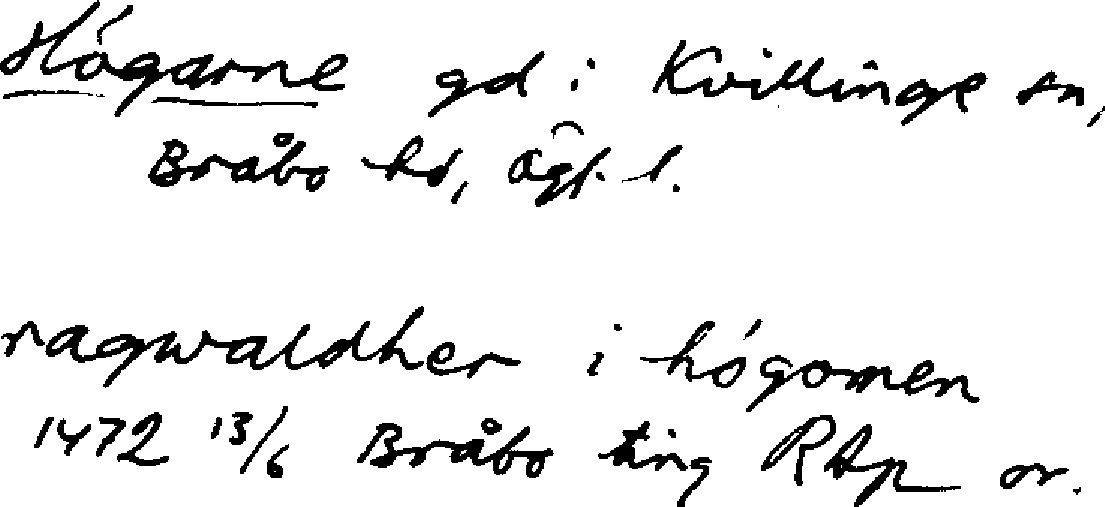 Högarne gd i Kvillinge sn,
Bråbo hd, Ögl. l.
ragwaldher i högomen
1472 13/6 Bråbo ting RAp or.